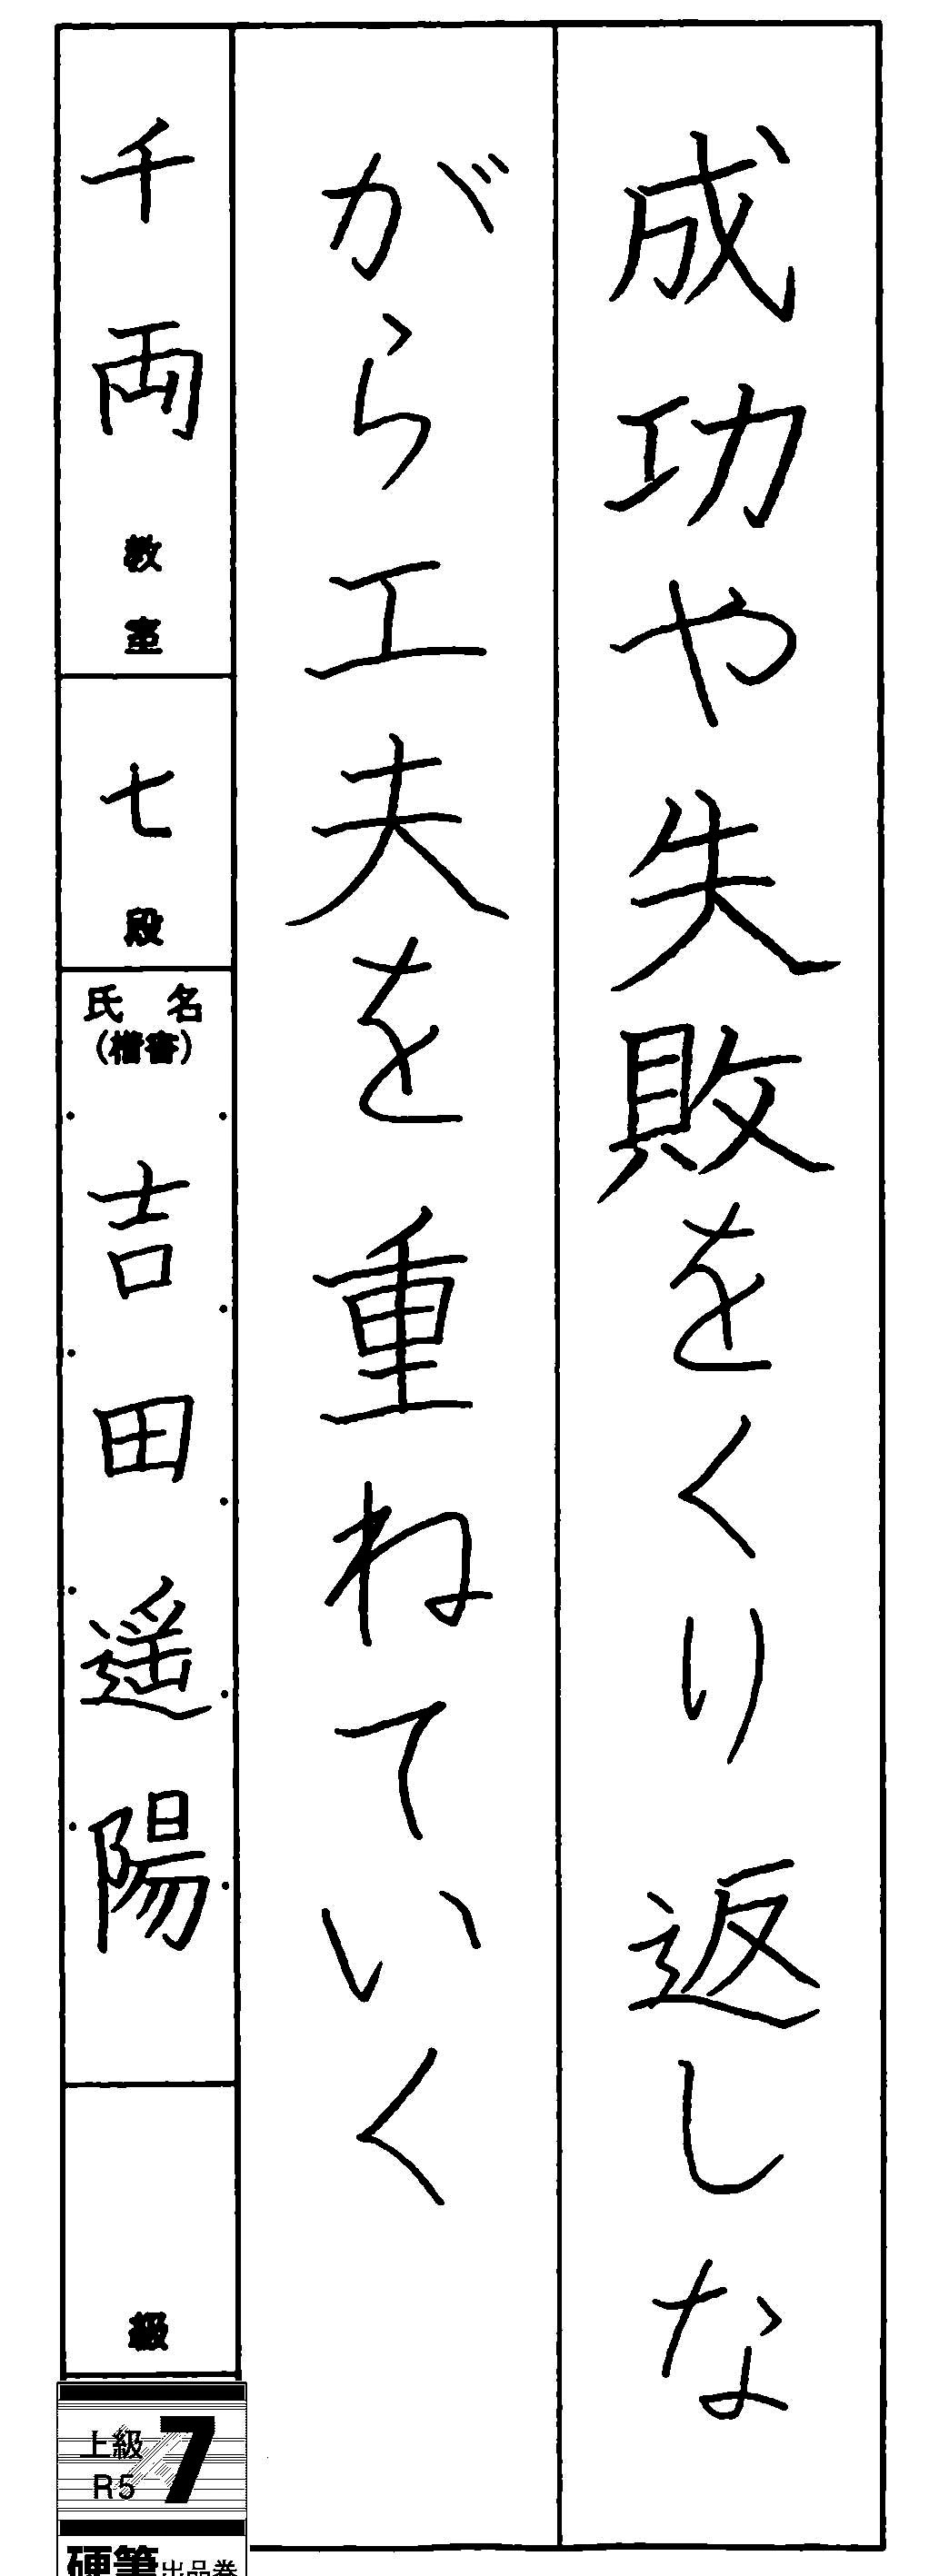 成功や失敗をくり返しな
がら工夫を重ねていく
千両教室
七段
氏名
(楷書)
吉田遥陽
級
上級
R5
7
硬筆出品券